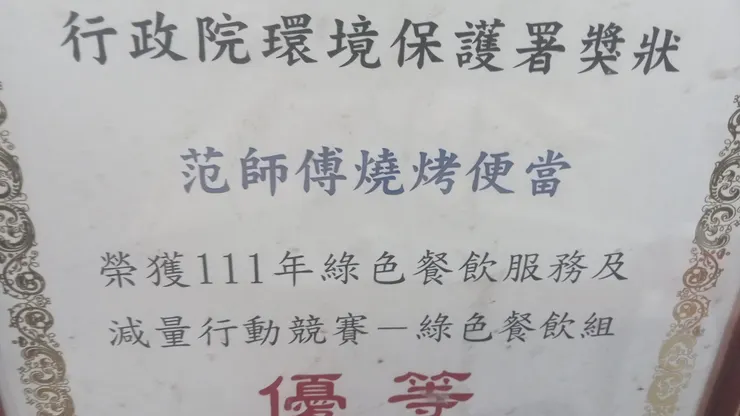 行政院環境保護署獎狀
范師傅燒烤便當
榮獲111年綠色餐飲服務及
減量行動競賽－綠色餐飲組
優等